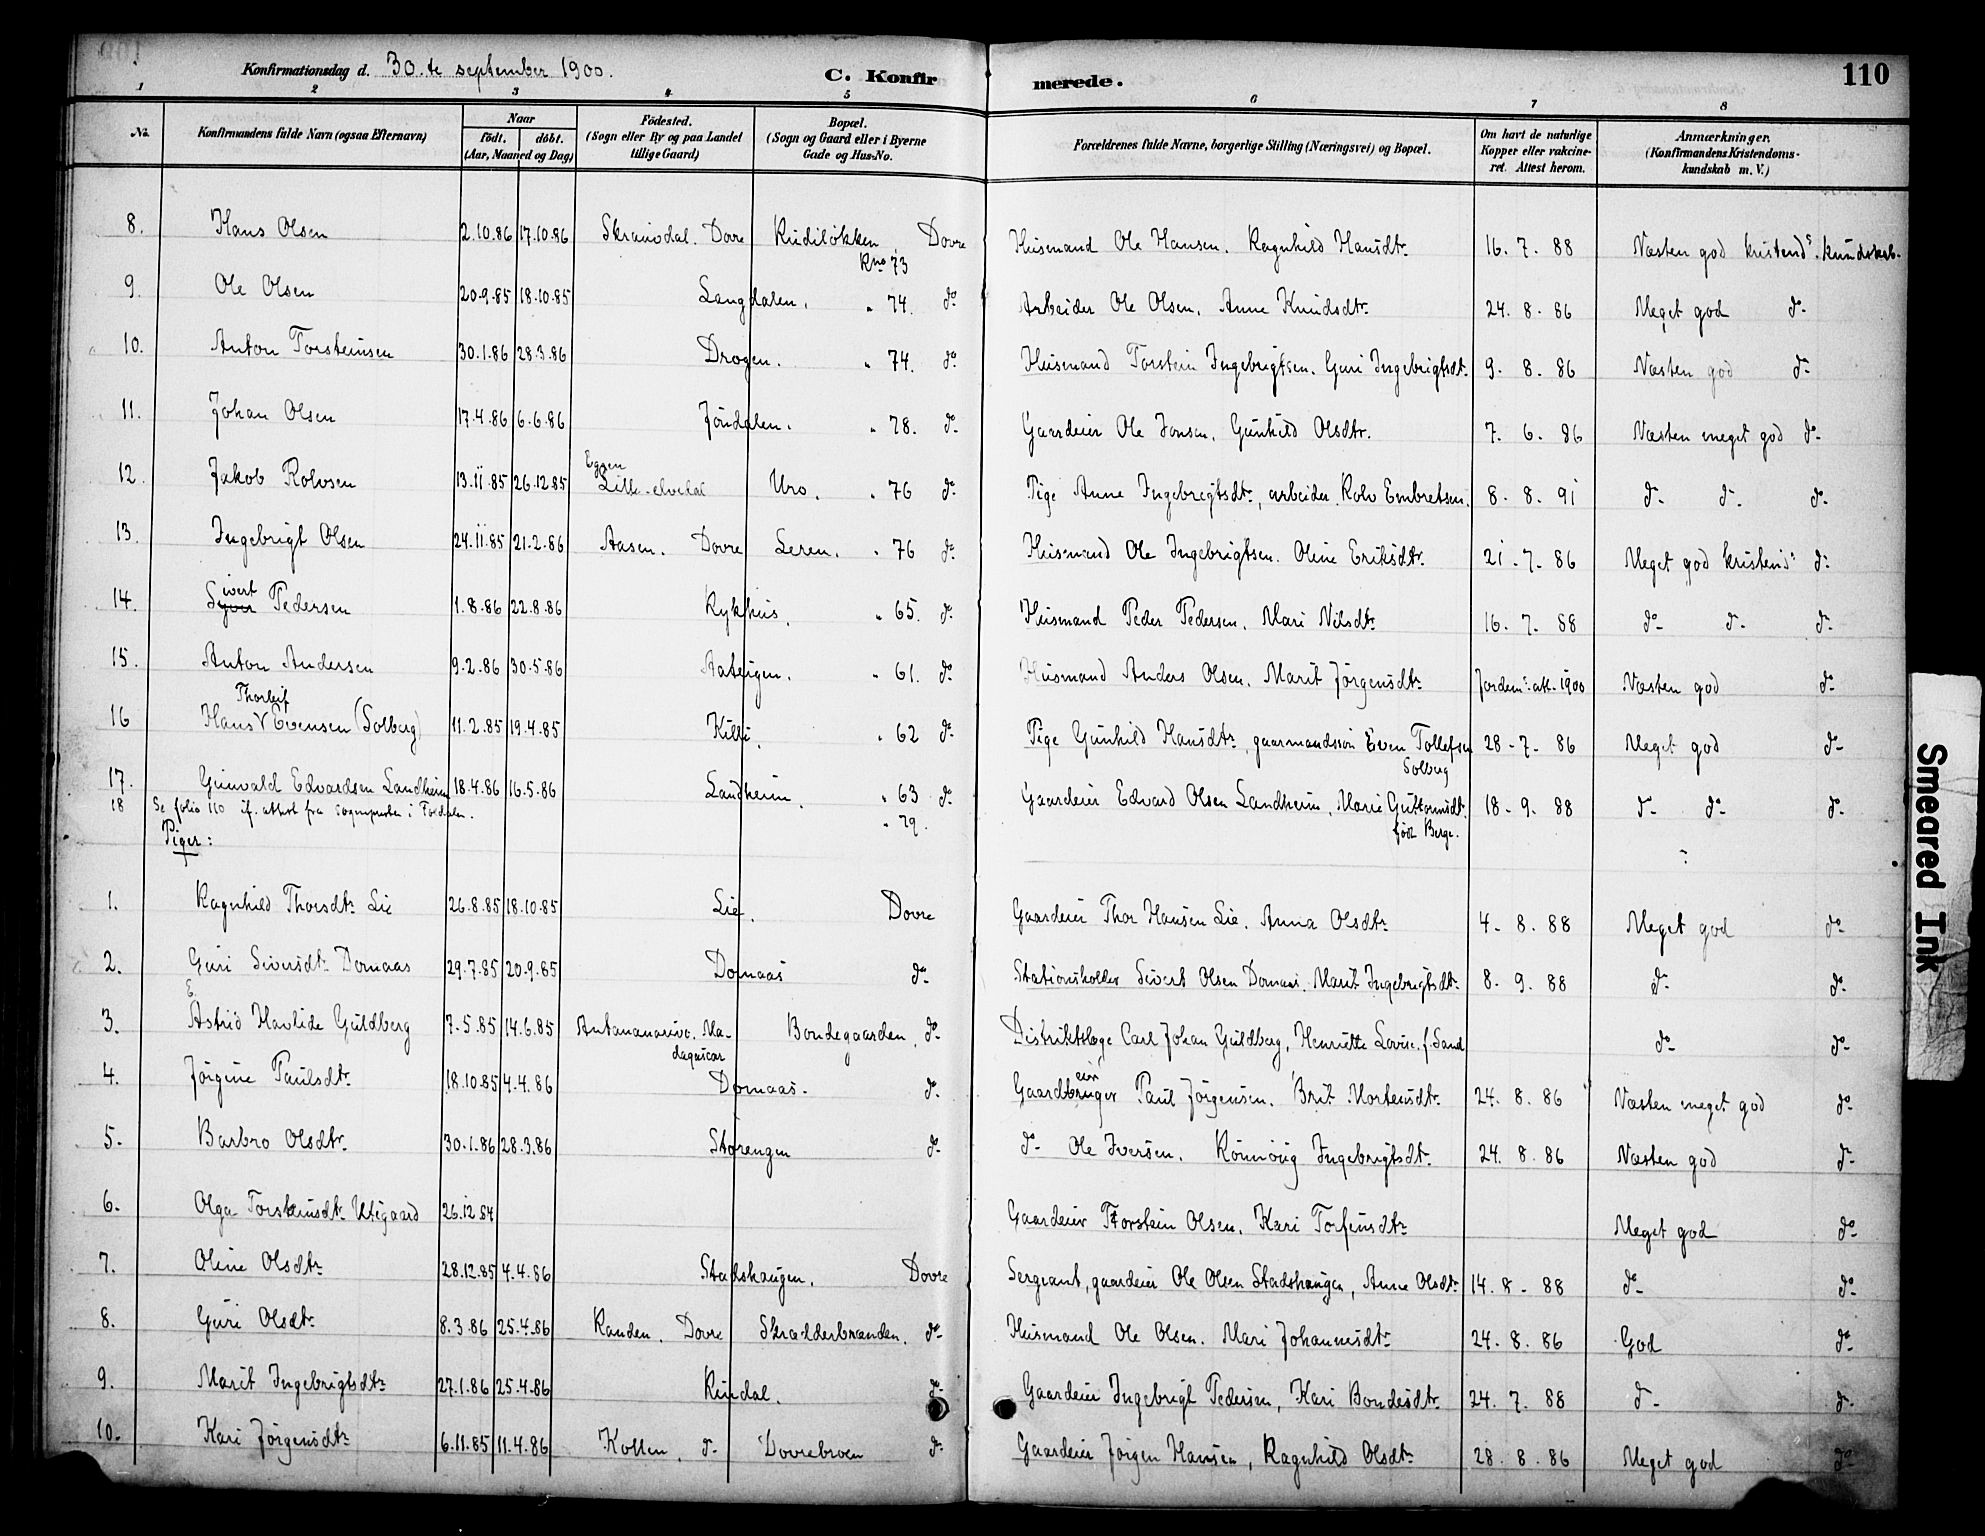 Konfirmationsdag d. 30.te september 1900. C. Konfirmerede. 110
1 2 3 4 5 6 7 8
No. Konfirmandens fulde Navn (ogsaa Efternavn) Naar født. døbt. (Aar, Maaned og Dag) Fødested. (Sogn eller By og paa Landet tillige Gaard) Bopæl. (Sogn og Gaard eller i Byerne Gade og Hus-No. Forældrenes fulde Navne, borgerlige Stilling (Næringsvei) og Bopæl. Om havt de naturlige Kopper eller vakcineret. Attest herom. Anmærkninger. (Konfirmandens Kristendomskundskab m. V.)
8. Hans Olsen 2.10.86 17.10.86 Dovre Rudiløkken, Kno 73 Dovre Husmand Ole Hansen. Ragnhild Hansdtr. 16. 7. 88 Næsten god kristends. kundskab.
9. Ole Olsen 20.9.85 18.10.85 Langdalen. " 74. do Arbeider Ole Olsen. Anne Knudsdtr. 24. 8. 86 Meget god do
10. Anton Torsteinsen 30.1.86 28.3.86 Drogen. " 74. do Husmand Torstein Ingebrigtsen. Guri Ingebrigtsdt. 9. 8. 86 Næsten god do
11. Johan Olsen 17.4.86 6.6.86 Jøndalen. " 78. do Gaardeier Ole Jonsen. Gunhild Olsdtr. 7. 6. 86 Næsten meget god do
12. Jakob Rolvsen 13.11.85 26.12.85 Eggen Lille-elvedal Uro. " 76 do Pige Anne Ingebrigtsdt., arbeider Rolv Embretsen. 8. 8. 91 do do do
13. Ingebrigt Olsen 24.11.85 21.2.86 Aasen. Dovre Leren. " 76 do Husmand Ole Ingebrigtsen. Oline Eriksdtr. 21. 7. 86 Meget god kristends do
14. Sivert Pedersen 1.8.86 22.8.86 Rykhus. " 65. do Husmand Peder Pedersen. Mari Nilsdtr. 16. 7. 88 do do do
15. Anton Andersen 9.2.86 30.5.86 " 61. do Husmand Anders Olsen. Marit Jørgensdtr. Jordem. att. 1900 Næsten god do
16 Hans Thorleif Evensen (Solberg) 11.2.85 19.4.85 Killi. " 62 do Pige Gunhild Hansdtr, gaarmandssøn Even Tollefsen Solberg 28-7-86 Meget god do
17. Gunvald Edvardsen Landheim 18.4.86 16.5.86 Landheim. " 63 do Gaardeier Edvard Olsen Landheim, Marie Guttormsdt. født Berge. 18-9-88 do do do
18 Se folio 110 if. attest fra sognepresten i " 29.
Piger:
1. Ragnhild Thorsdtr Lie 26.8.85 18.10.85 Lie. Dovre Gaardeier Thor Hansen Lie. Anna Olsdtr. 4. 8. 88 Meget god do
2. Guri Siversdtr Domaas 29.7.85 20.9.85 Domaas do Stationsholder Sivert Olsen Domaas. Marit Ingebrigtsdtr. 8. 9. 88 do do
3. E Astrid Havlide Guldberg 7.5.85 14.6.85 Antananarivo. Madagascar Bondegaarden. do Distriktslæge Carl Johan Guldberg, Henriette Lovise f. Sand do do
4. Jørgine Paulsdtr. 18.10.85 4.4.86 Domaas. do Gaardbruger eier Paul Jørgensen. Brit Mortensdtr. 24. 8. 86 Næsten meget god do
5. Barbro Olsdtr. 30.1.86 28.3.86 Storengen do do Ole Iversen. Rønnoug Ingebrigtsdt. 24. 8. 86 Næsten god do
6. Olga Torsteinsdtr Utigaard 26.12.84 Gaardeier Torstein Olsen. Kari Torfinsdtr Meget god do
7. Oline Olsdtr 28.12.85 4.4.86 Stadshaugen. Dovre Sergeant, gaardeier Ole Olsen Stadshaugen, Anne Olsdtr 14. 8. 88 do do
8. Guri Olsdtr. 8.3.86 25.4.86 Randen. Dovre Skrædderbranden. do Husmand Ole Olsen. Mari Johannesdtr 24. 8. 86 God do
9. Marit Ingebrigtsdtr 27.1.86 25.4.86 Rindal. do Gaardeier Ingebrigt Pedersen, Kari Bondesdtr. 24. 7. 88 do do
10. Kari Jørgensdtr 6.11.85 11.4.86 Kollen. do Dovrebroen do Gaardeier Jørgen Hansen, Ragnhild Olsdtr. 28. 8. 86 Meget god do
Smeared Ink